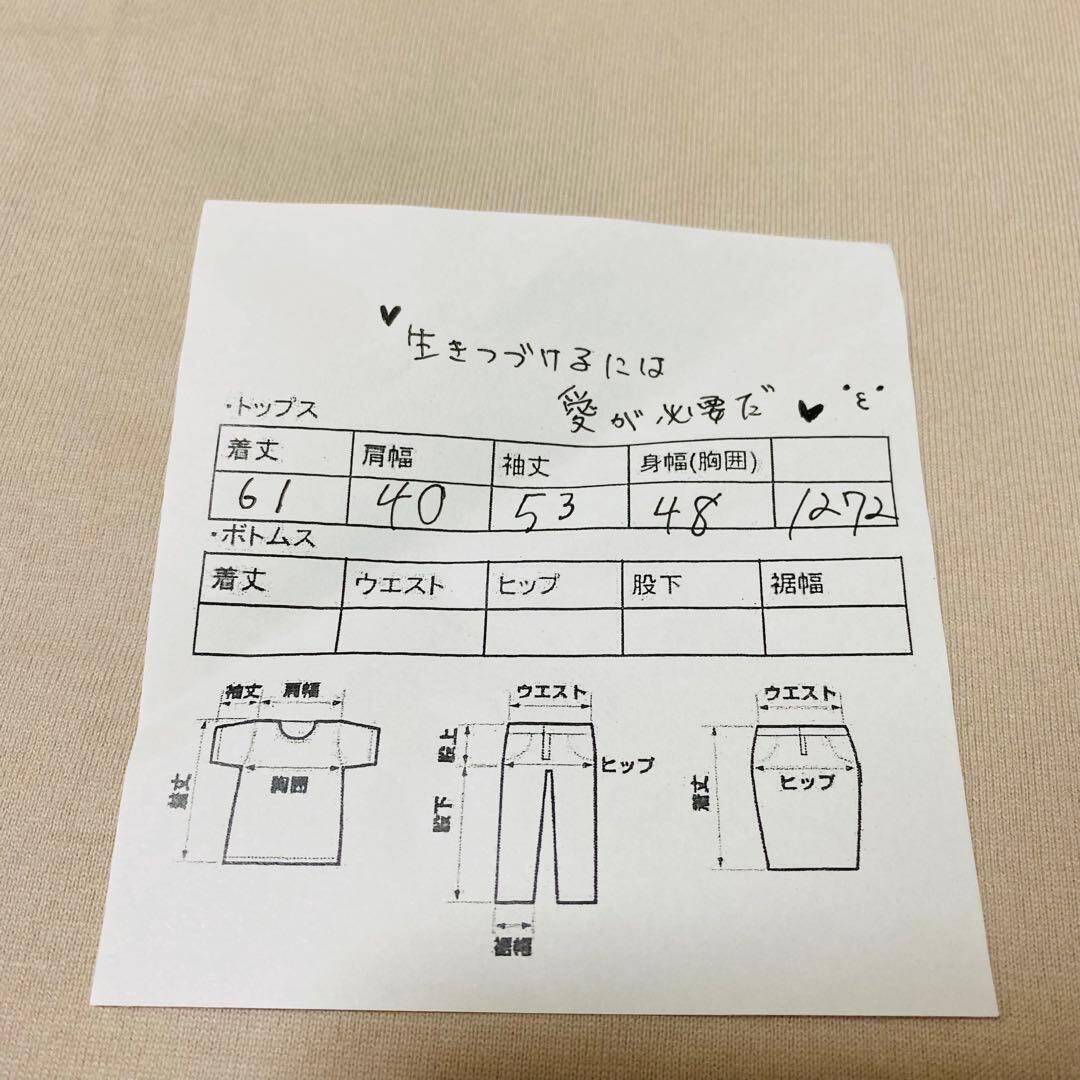 ♥生きつづけるには
愛が必要だ♥ ˙ε˙
・トップス
着丈 肩幅 袖丈 身幅(胸囲)
61 40 53 48 1272
・ボトムス
着丈 ウエスト ヒップ 股下 裾幅
袖丈 肩幅
着丈
胸囲
ウエスト
股上
ヒップ
股下
裾幅
ウエスト
着丈
ヒップ